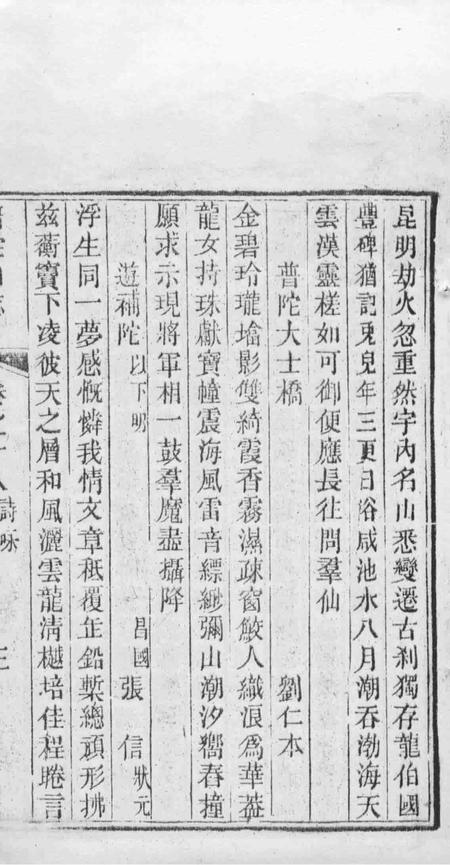 昆明劫火忽重然宇內名山悉變遷古刹獨存龍伯國
豐碑猶記兎兒年三更日浴咸池水八月潮吞渤海天
雲漢靈槎如可御便應長往問羣仙
普陀大士橋　劉仁本
金碧玲瓏塔影雙綺霞香霧濕疎窗鮫人織浪爲華葢
龍女持珠獻寶幢震海風雷音縹緲彌山潮汐嚮舂撞
願求示現將軍相一鼓羣魔盡攝降
遊補陀以下明　昌國張信狀元
浮生同一夢感慨憐我情文章秪覆缶鉛槧總頑形拂
兹衡寶下凌彼天之層和風灑雲龍淸樾培佳程睠言